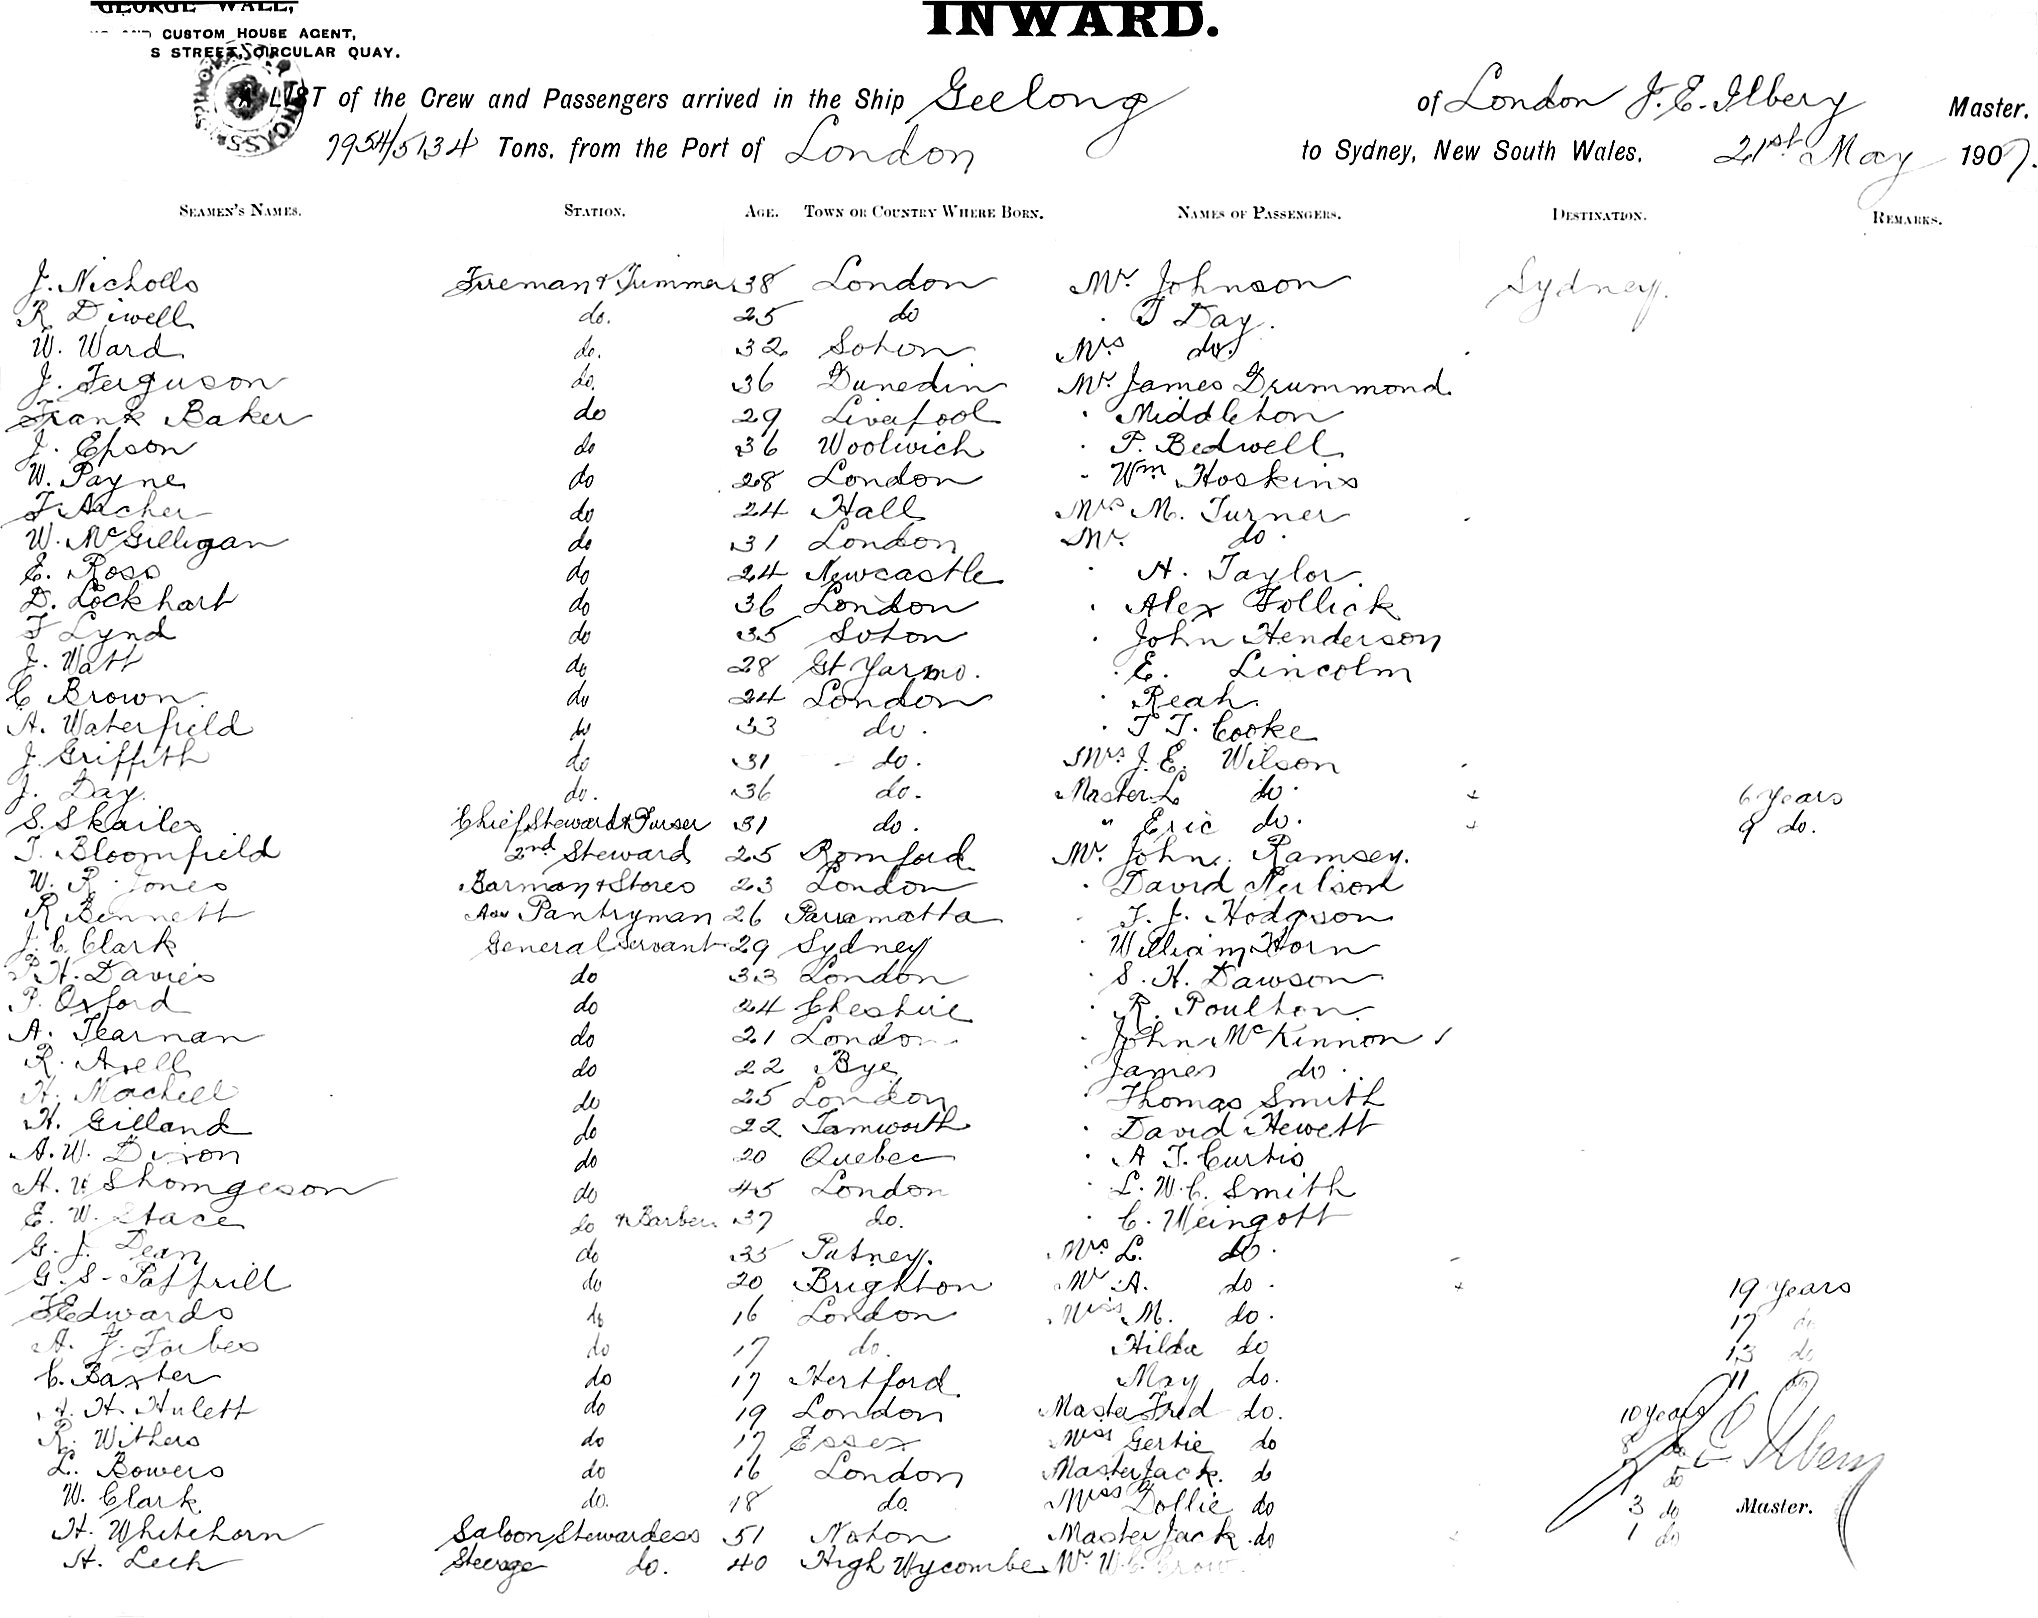 GEORGE WALL,
CUSTOM HOUSE AGENT,
S STREET, CIRCULAR QUAY.
INWARD.
A LIST of the Crew and Passengers arrived in the Ship Geelong of London J. E. Ilbery Master.
7954/5134 Tons, from the Port of London to Sydney, New South Wales, 21st May 1907.
SEAMEN'S NAMES. STATION. AGE. TOWN OR COUNTRY WHERE BORN. NAMES OF PASSENGERS. DESTINATION. REMARKS.
J. Nicholls Fireman & Trimmer 38 London Mr Johnson Sydney.
R Diwell do. 25 do T Day.
W. Ward do. 32 Soton Mrs do.
J. Ferguson do. 36 Dunedin Mr James Drummond
Frank Baker do 29 Liverpool Middleton
J. Epson do 36 Woolwich P. Bedwell
W. Payne do 28 London Wm Hoskins
F Archer do 24 Hall Mrs M. Turner
W. McGilligan do 31 London Mr. do.
E. Ross do 24 Newcastle H. Taylor.
D. Lockhart do 36 London Alex Follick
F Lynd do 35 Soton John Henderson
J. Watt do 28 Gt Yarmo. E. Lincolm
C Brown. do 24 London Reah.
A. Waterfield do 33 do. T T. Cooke
J. Griffith do 31 do. Mrs J. E. Wilson
J. Day. do. 36 do. Master L do. 6 Years
S. Skailes Chief Steward & Purser 31 do. " Eric do. 9 do.
T. Bloomfield 2nd Steward 25 Romford Mr. John. Ramsey.
W. R. Jones Barman & Stores 23 London David Neilson
R Bennett Ass Pantryman 26 Parramatta T. J. Hodgson
J. C. Clark General Servant 29 Sydney William Horn
H. Davies do 33 London S. H. Dawson
P. Oxford do 24 Cheshire R. Poulton.
A. Tearnan do 21 London John McKinnon
R. Axell do 22 Bye James do.
H. Machell do 25 London Thomas Smith
H. Gilland do 22 Tamworth David Hewett
A. W. Dixon do 20 Quebec A T. Curtis
A. Shomgeson do 45 London L. W. C. Smith
E. W. Stace do & Barber 37 do. C. Weingott
G. J. Dean do 35 Putney. Mrs L. do.
G. S. Paffrill do 20 Brighton Mr A. do. 19 Years
Edwards do 16 London Miss M. do. 17 do
A. J. Forbes do 17 do. Hilda do 13 do
C. Baxter do 17 Hertford. May do. 11 do
H. Hulett do 19 London Master Fred do. 10 Years
R. Withers do 17 Essex Miss Gertie do 8 do J E Ilbery
L. Bowers do 16 London Master Jack. do 5 do
W. Clark do. 18 do. Miss Dollie do 3 do Master.
H. Whitehorn Saloon Stewardess 51 Noton Master Jack do 1 do
H. Lech Steerage do. 40 High Wycombe Mr W. C. Crow